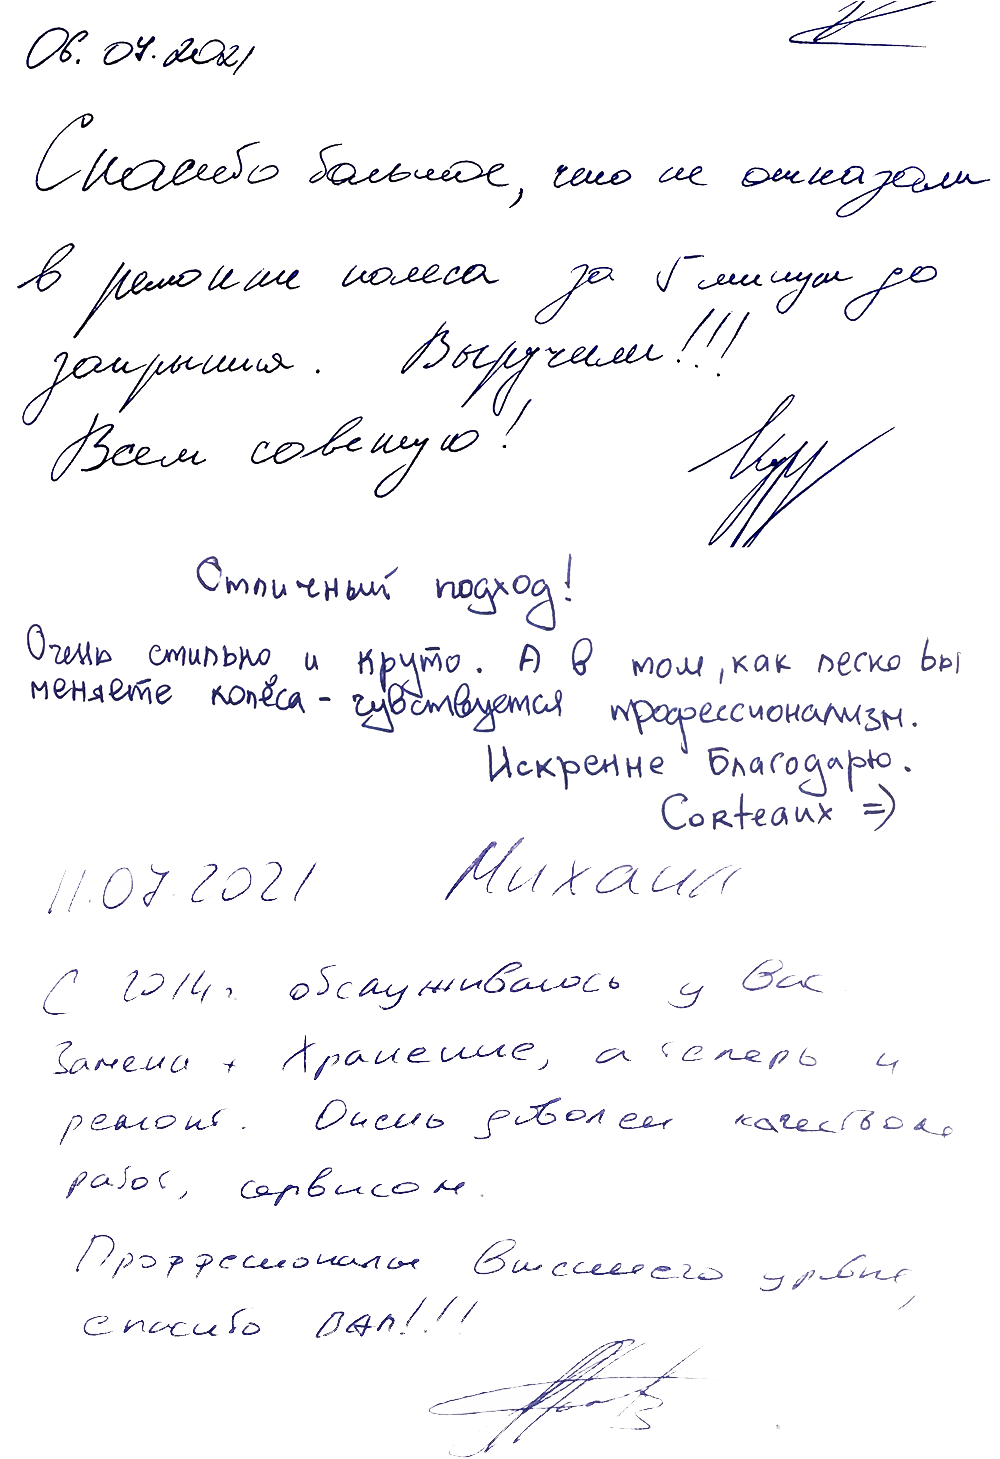 06.07.2021
Спасибо большое, что не отказали
в ремонте колеса за 5 минут до
закрытия. Выручили!!!
Всем советую!
Отличный подход!
Очень стильно и круто. А в том, как легко вы
меняете колёса - чувствуется профессионализм.
Искренне благодарю.
Corteaux =)
11.07.2021 Михаил
С 2014г. обслуживаюсь у Вас
Замена + Хранение, а теперь и
ремонт. Очень доволен качеством
работ, сервисом.
Проффесионалы высшего уровня,
спасибо ВАМ!!!